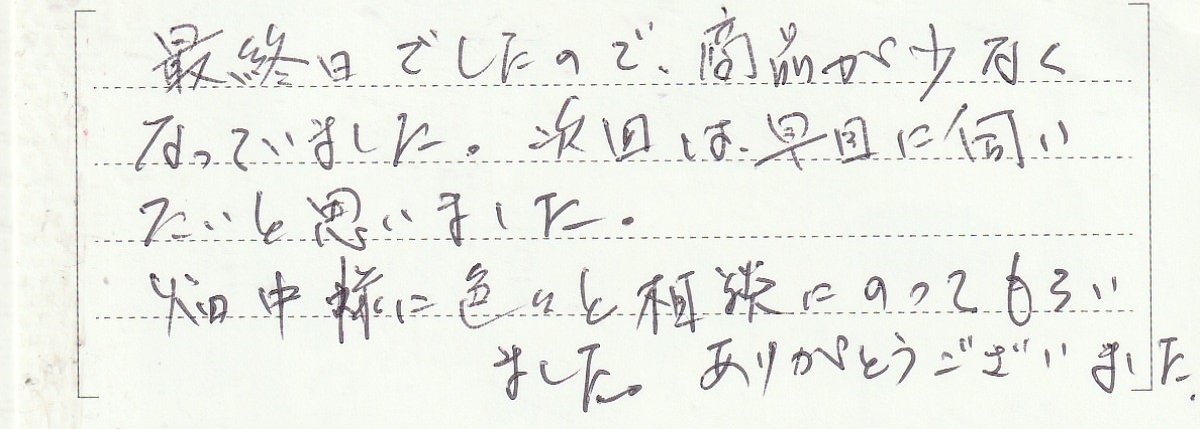 最終日でしたので、商品が少なく
なっていました。次回は、早目に伺い
たいと思いました。
畑中様に色々と相談にのってもらい
ました。ありがとうございました.